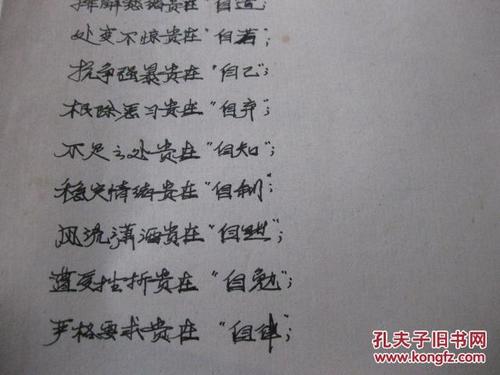 排解愁绪贵在“自遣”;
处变不惊贵在“自若”;
抗争强暴贵在“自己”;
根除恶习贵在“自弃”;
不足之处贵在“自知”;
稳定情绪贵在“自制”;
风流潇洒贵在“自然”;
遭受挫折贵在“自勉”;
严格要求贵在“自律”;
孔夫子旧书网
www.kongfz.com